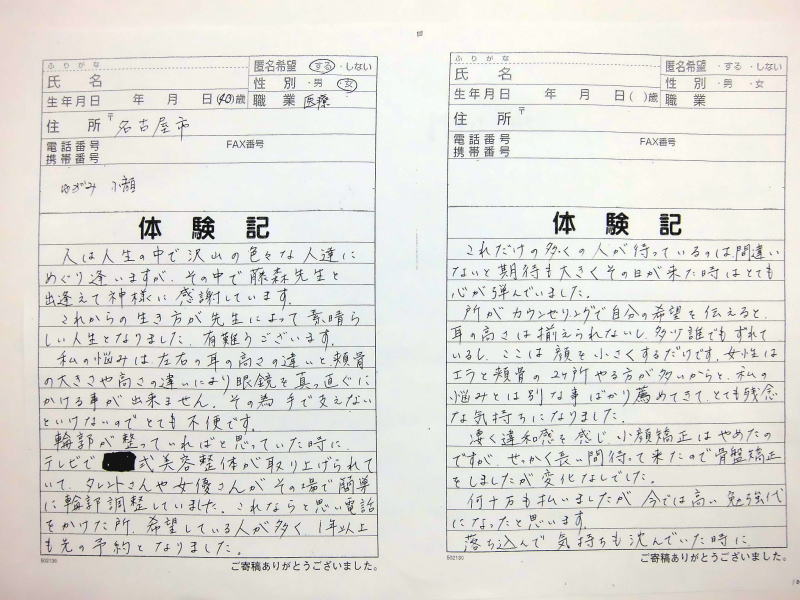 ふりがな
氏 名
匿名希望 ・する ・しない
性 別 ・男 ・女
生年月日 年 月 日(40)歳
職 業 医療
住 所 〒 名古屋市
電話番号
FAX番号
携帯番号
ゆがみ 小顔
体験記
人は人生の中で沢山の色々な人達に
めぐり逢いますが、その中で藤森先生と
出逢えて神様に感謝しています。
これからの生き方が先生によって素晴ら
しい人生となりました。有難うございます。
私の悩みは左右の耳の高さの違いと、頬骨
の大きさや高さの違いにより眼鏡を真っ直ぐに
かける事が出来ません。その為手で支えない
といけないのでとても不便です。
輪郭が整っていればと思っていた時に
テレビで 式美容整体が取り上げられて
いて、タレントさんや女優さんがその場で簡単
に輪郭調整していました。これならと思い電話
をかけた所、希望している人が多く、1年以上
も先の予約となりました。
502130
ご寄稿ありがとうございました。
ふりがな
氏 名
匿名希望 ・する ・しない
性 別 ・男 ・女
生年月日 年 月 日( )歳
職 業
住 所 〒
電話番号
FAX番号
携帯番号
体験記
これだけの多くの人が待っているのは間違い
ないと期待も大きくその日が来た時はとても
心が弾んでいました。
所がカウンセリングで自分の希望を伝えると、
耳の高さは揃えられないし、多少誰でもずれて
いるし、ここは顔を小さくするだけです。女性は
エラと頬骨の2ヶ所やる方が多いからと、私の
悩みとは別な事ばかり薦めてきて、とても残念
な気持ちになりました。
凄く違和感を感じ、小顔矯正はやめたの
ですが、せっかく長い間待って来たので骨盤矯正
をしましたが変化なしでした。
何十万も払いましたが今では高い勉強代
になったと思います。
落ち込んで気持ちも沈んでいた時に
502130
ご寄稿ありがとうございました。